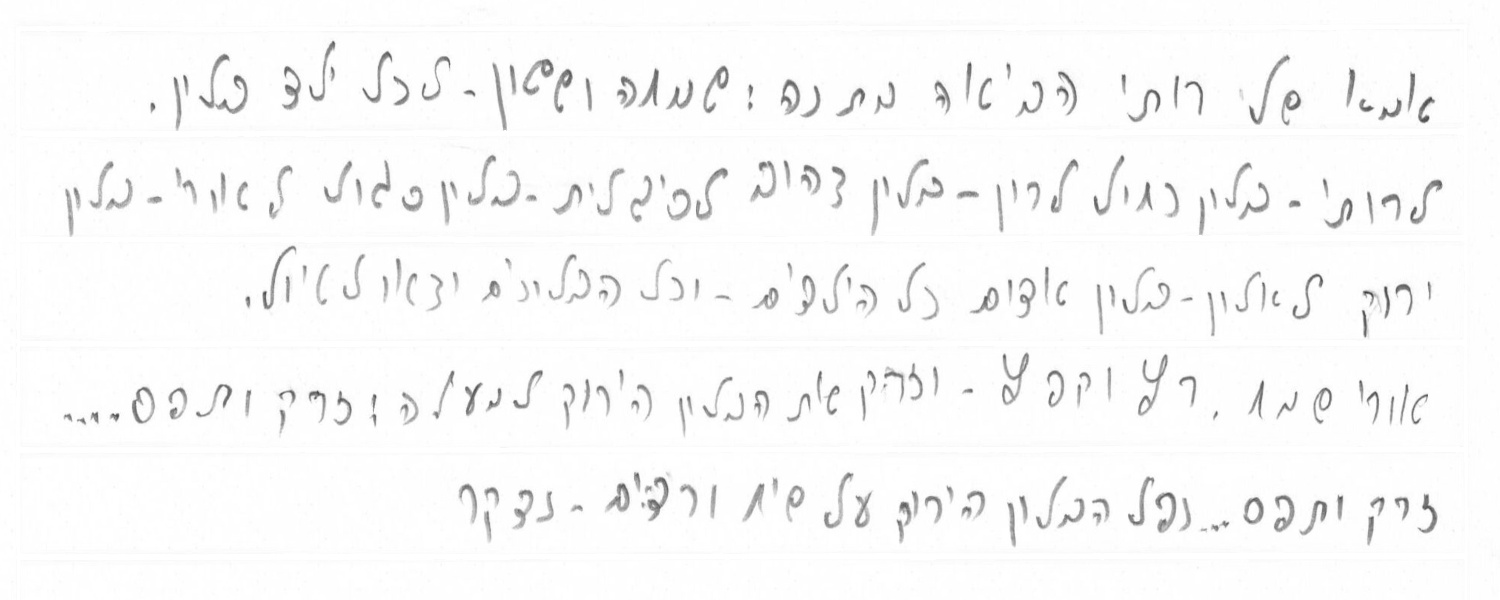 אמא של רותי הביאה מתנה: שמחה וששון - לכל ילד בלון.
לרותי - בלון כחול לרון - בלון צהוב לסיגלית - בלון סגול לאורי - בלון
ירוק לאלון - בלון אדום כל הילדים - וכל הבלונים יצאו לטיול.
אורי שמח. רץ וקפץ - וזרק את הבלון הירוק למעלה: זרק ותפס.....
זרק ותפס...נפל הבלון הירוק על שיח ורדים - נדקר